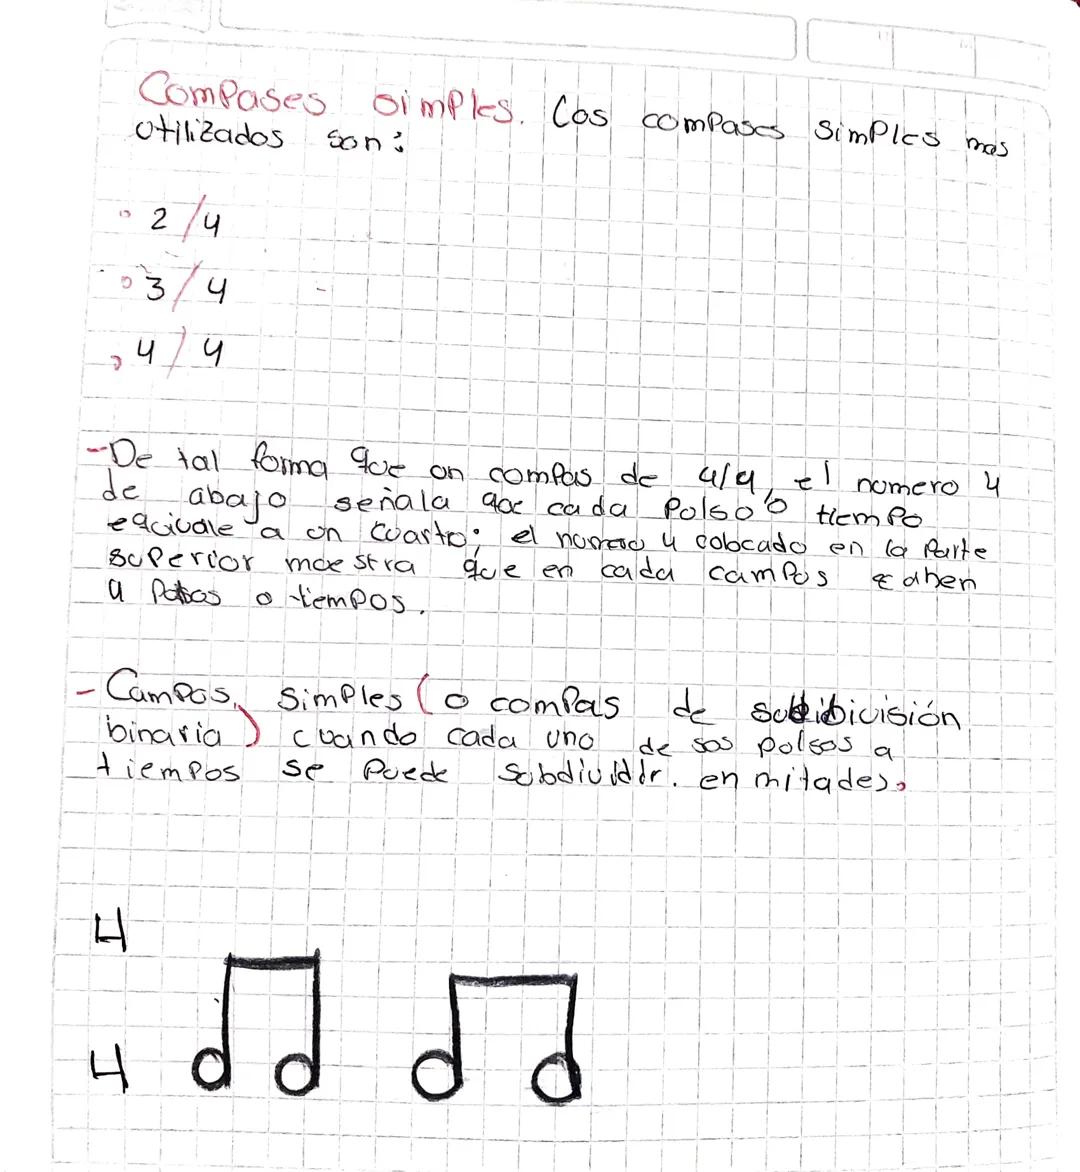 Compases simples. Los compases simples mas
utilizados son:
2/4
3/4
4/4
-De tal forma que un compas de 4/4, el numero 4
de abajo señala que cada pulso o tiempo
equivale a un cuarto; el numero 4 colocado en la parte
superior muestra que en cada campos caben
4 o tiempos.
- Campos, simples (o compas de subdibicisión
binaria) cuando cada uno de sus pulsos a
tiempos se puede subdividir. en mitades.
4
4